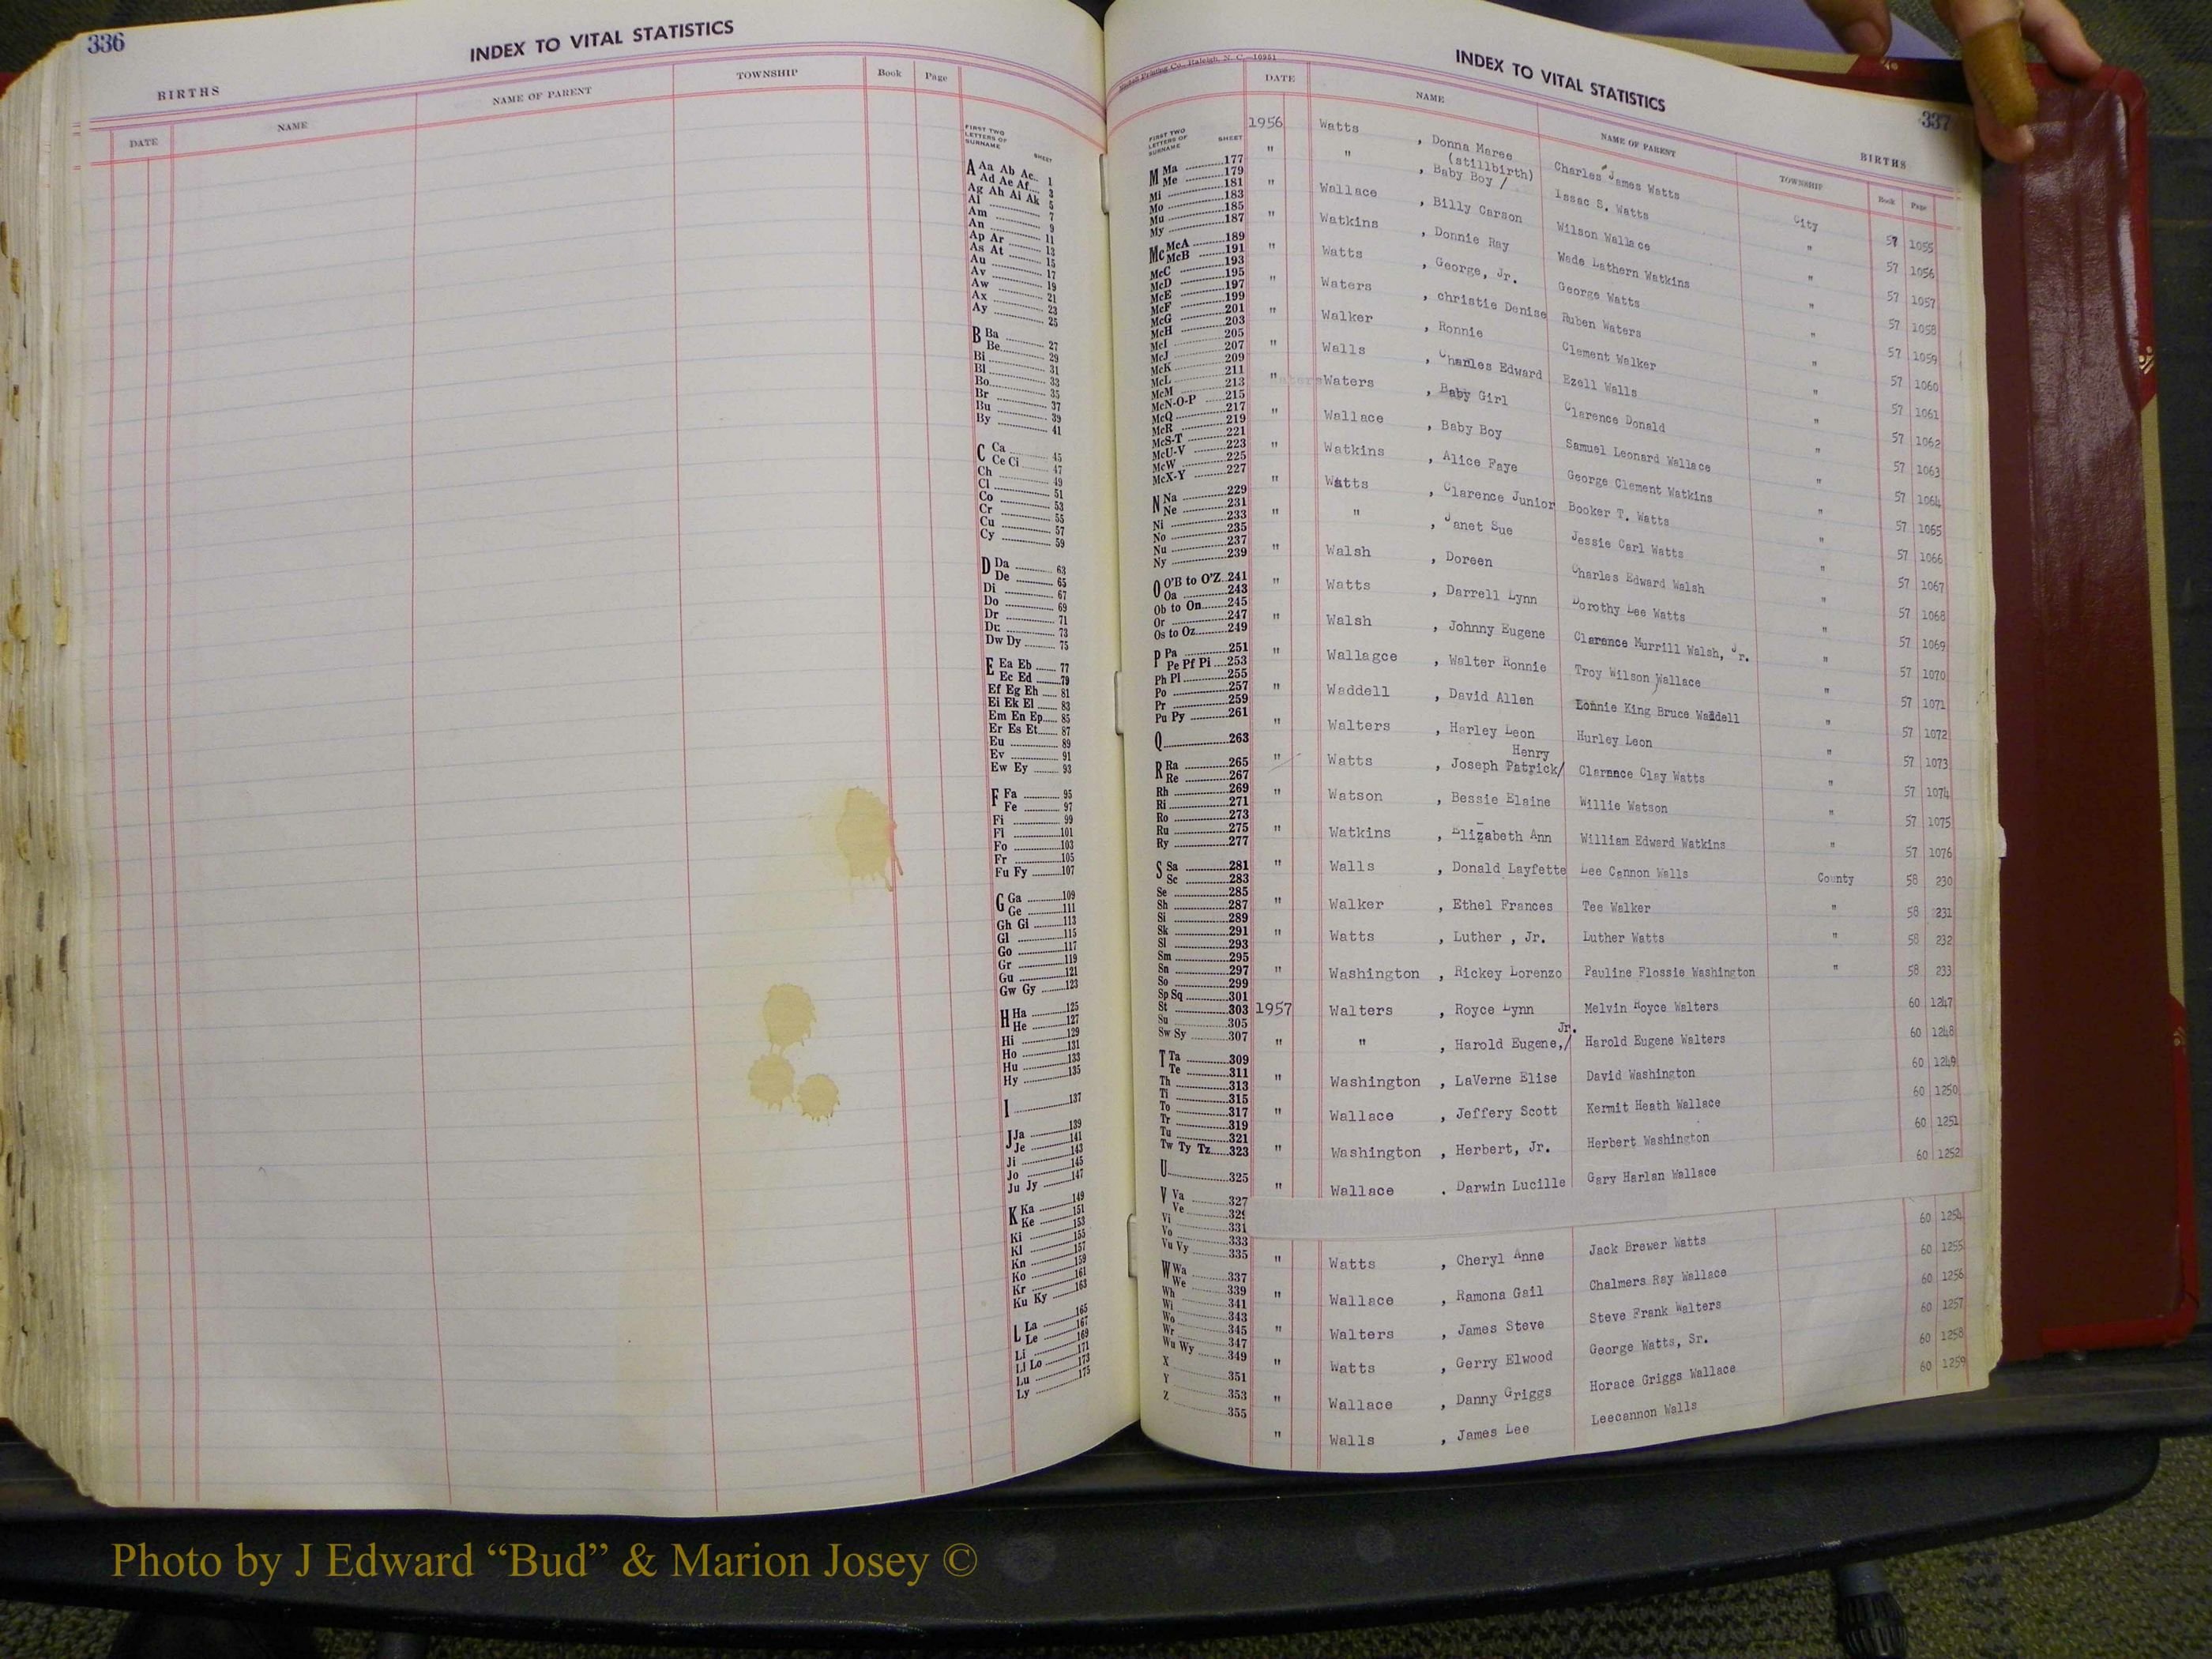 336
INDEX TO VITAL STATISTICS
BIRTHS
DATE NAME NAME OF PARENT TOWNSHIP Book Page
FIRST TWO
LETTERS OF
SURNAME SHEET
A Aa Ab Ac 1
Ad Ae Af 3
Ag Ah Ai Ak 5
Al 7
Am 9
An 11
Ap Ar 13
As At 15
Au 17
Av 19
Aw 21
Ax 23
Ay 25
B Ba 27
Be 29
Bi 31
Bl 33
Bo 35
Br 37
Bu 39
By 41
C Ca 45
Ce Ci 47
Ch 49
Cl 51
Co 53
Cr 55
Cu 57
Cy 59
D Da 63
De 65
Di 67
Do 69
Dr 71
Du 73
Dw Dy 75
E Ea Eb 77
Ec Ed 79
Ef Eg Eh 81
Ei Ek El 83
Em En Ep 85
Er Es Et 87
Eu 89
Ev 91
Ew Ey 93
F Fa 95
Fe 97
Fi 99
Fl 101
Fo 103
Fr 105
Fu Fy 107
G Ga 109
Ge 111
Gh Gi 113
Gl 115
Go 117
Gr 119
Gu 121
Gw Gy 123
H Ha 125
He 127
Hi 129
Ho 131
Hu 133
Hy 135
I 137
J Ja 139
Je 141
Ji 143
Jo 145
Ju Jy 147
K Ka 149
Ke 151
Ki 153
Kl 155
Kn 157
Ko 159
Kr 161
Ku Ky 163
L La 165
Le 167
Li 169
Ll Lo 171
Lu 173
Ly 175
Printing Co., Raleigh, N. C.—10951
INDEX TO VITAL STATISTICS
337
BIRTHS
DATE NAME NAME OF PARENT TOWNSHIP Book Page
FIRST TWO
LETTERS OF
SURNAME SHEET
M Ma 177
Me 179
Mi 181
Mo 183
Mu 185
My 187
Mc McA 189
McB 191
McC 193
McD 195
McE 197
McF 199
McG 201
McH 203
McI 205
McJ 207
McK 209
McL 211
McM 213
McN-O-P 215
McQ 217
McR 219
McS-T 221
McU-V 223
McW 225
McX-Y 227
N Na 229
Ne 231
Ni 233
No 235
Nu 237
Ny 239
O O'B to O'Z 241
Oa 243
Ob to On 245
Or 247
Os to Oz 249
P Pa 251
Pe Pf Pi 253
Ph Pl 255
Po 257
Pr 259
Pu Py 261
Q 263
R Ra 265
Re 267
Rh 269
Ri 271
Ro 273
Ru 275
Ry 277
S Sa 281
Sc 283
Se 285
Sh 287
Si 289
Sk 291
Sl 293
Sm 295
Sn 297
So 299
Sp Sq 301
St 303
Su 305
Sw Sy 307
T Ta 309
Te 311
Th 313
Ti 315
To 317
Tr 319
Tu 321
Tw Ty Tz 323
U 325
V Va 327
Ve 329
Vi 331
Vo 333
Vu Vy 335
W Wa 337
We 339
Wh 341
Wi 343
Wo 345
Wr 347
Wu Wy 349
X 351
Y 353
Z 355
1956 Watts , Donna Maree Charles James Watts City 57 1055
(stillbirth)
" " , Baby Boy / Issac S. Watts " 57 1056
" Wallace , Billy Carson Wilson Wallace " 57 1057
" Watkins , Donnie Ray Wade Lathern Watkins " 57 1058
" Watts , George, Jr. George Watts " 57 1059
" Waters , christie Denise Ruben Waters " 57 1060
" Walker , Ronnie Clement Walker " 57 1061
" Walls , Charles Edward Ezell Walls " 57 1062
" Waters , Baby Girl Clarence Donald " 57 1063
" Wallace , Baby Boy Samuel Leonard Wallace " 57 1064
" Watkins , Alice Faye George Clement Watkins " 57 1065
" Watts , Clarence Junior Booker T. Watts " 57 1066
" " , Janet Sue Jessie Carl Watts " 57 1067
" Walsh , Doreen Charles Edward Walsh " 57 1068
" Watts , Darrell Lynn Dorothy Lee Watts " 57 1069
" Walsh , Johnny Eugene Clarence Murrill Walsh, Jr. " 57 1070
" Wallagce , Walter Ronnie Troy Wilson Wallace " 57 1071
" Waddell , David Allen Lonnie King Bruce Waddell " 57 1072
" Walters , Harley Leon Hurley Leon " 57 1073
Henry
" Watts , Joseph Patrick/ Clarence Clay Watts " 57 1074
" Watson , Bessie Elaine Willie Watson " 57 1075
" Watkins , Elizabeth Ann William Edward Watkins " 57 1076
" Walls , Donald Layfette Lee Cannon Walls County 58 230
" Walker , Ethel Frances Tee Walker " 58 231
" Watts , Luther , Jr. Luther Watts " 58 232
" Washington , Rickey Lorenzo Pauline Flossie Washington " 58 233
1957 Walters , Royce Lynn Melvin Royce Walters 60 1247
Jr.
" " , Harold Eugene,/ Harold Eugene Walters 60 1248
" Washington , LaVerne Elise David Washington 60 1249
" Wallace , Jeffery Scott Kermit Heath Wallace 60 1250
" Washington , Herbert, Jr. Herbert Washington 60 1251
" Wallace . Darwin Lucille Gary Harlan Wallace 60 1252
" Watts , Cheryl Anne Jack Brewer Watts 60 1254
" Wallace , Ramona Gail Chalmers Ray Wallace 60 1255
" Walters , James Steve Steve Frank Walters 60 1256
" Watts , Gerry Elwood George Watts, Sr. 60 1257
" Wallace , Danny Griggs Horace Griggs Wallace 60 1258
" Walls , James Lee Leecannon Walls 60 1259
Photo by J Edward “Bud” & Marion Josey ©